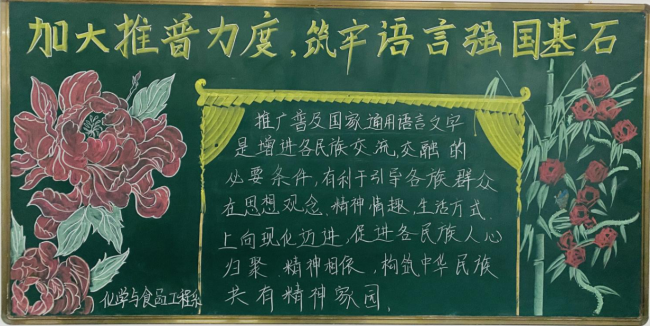 加大推普力度,筑牢语言强国基石
推广普及国家通用语言文字
是增进各民族交流,交融的
必要条件,有利于引导各族群众
在思想观念、精神情趣,生活方式.
上向现代化迈进,促进各民族人心
归聚、精神相依,构筑中华民族
共有精神家园、
化学与食品工程系